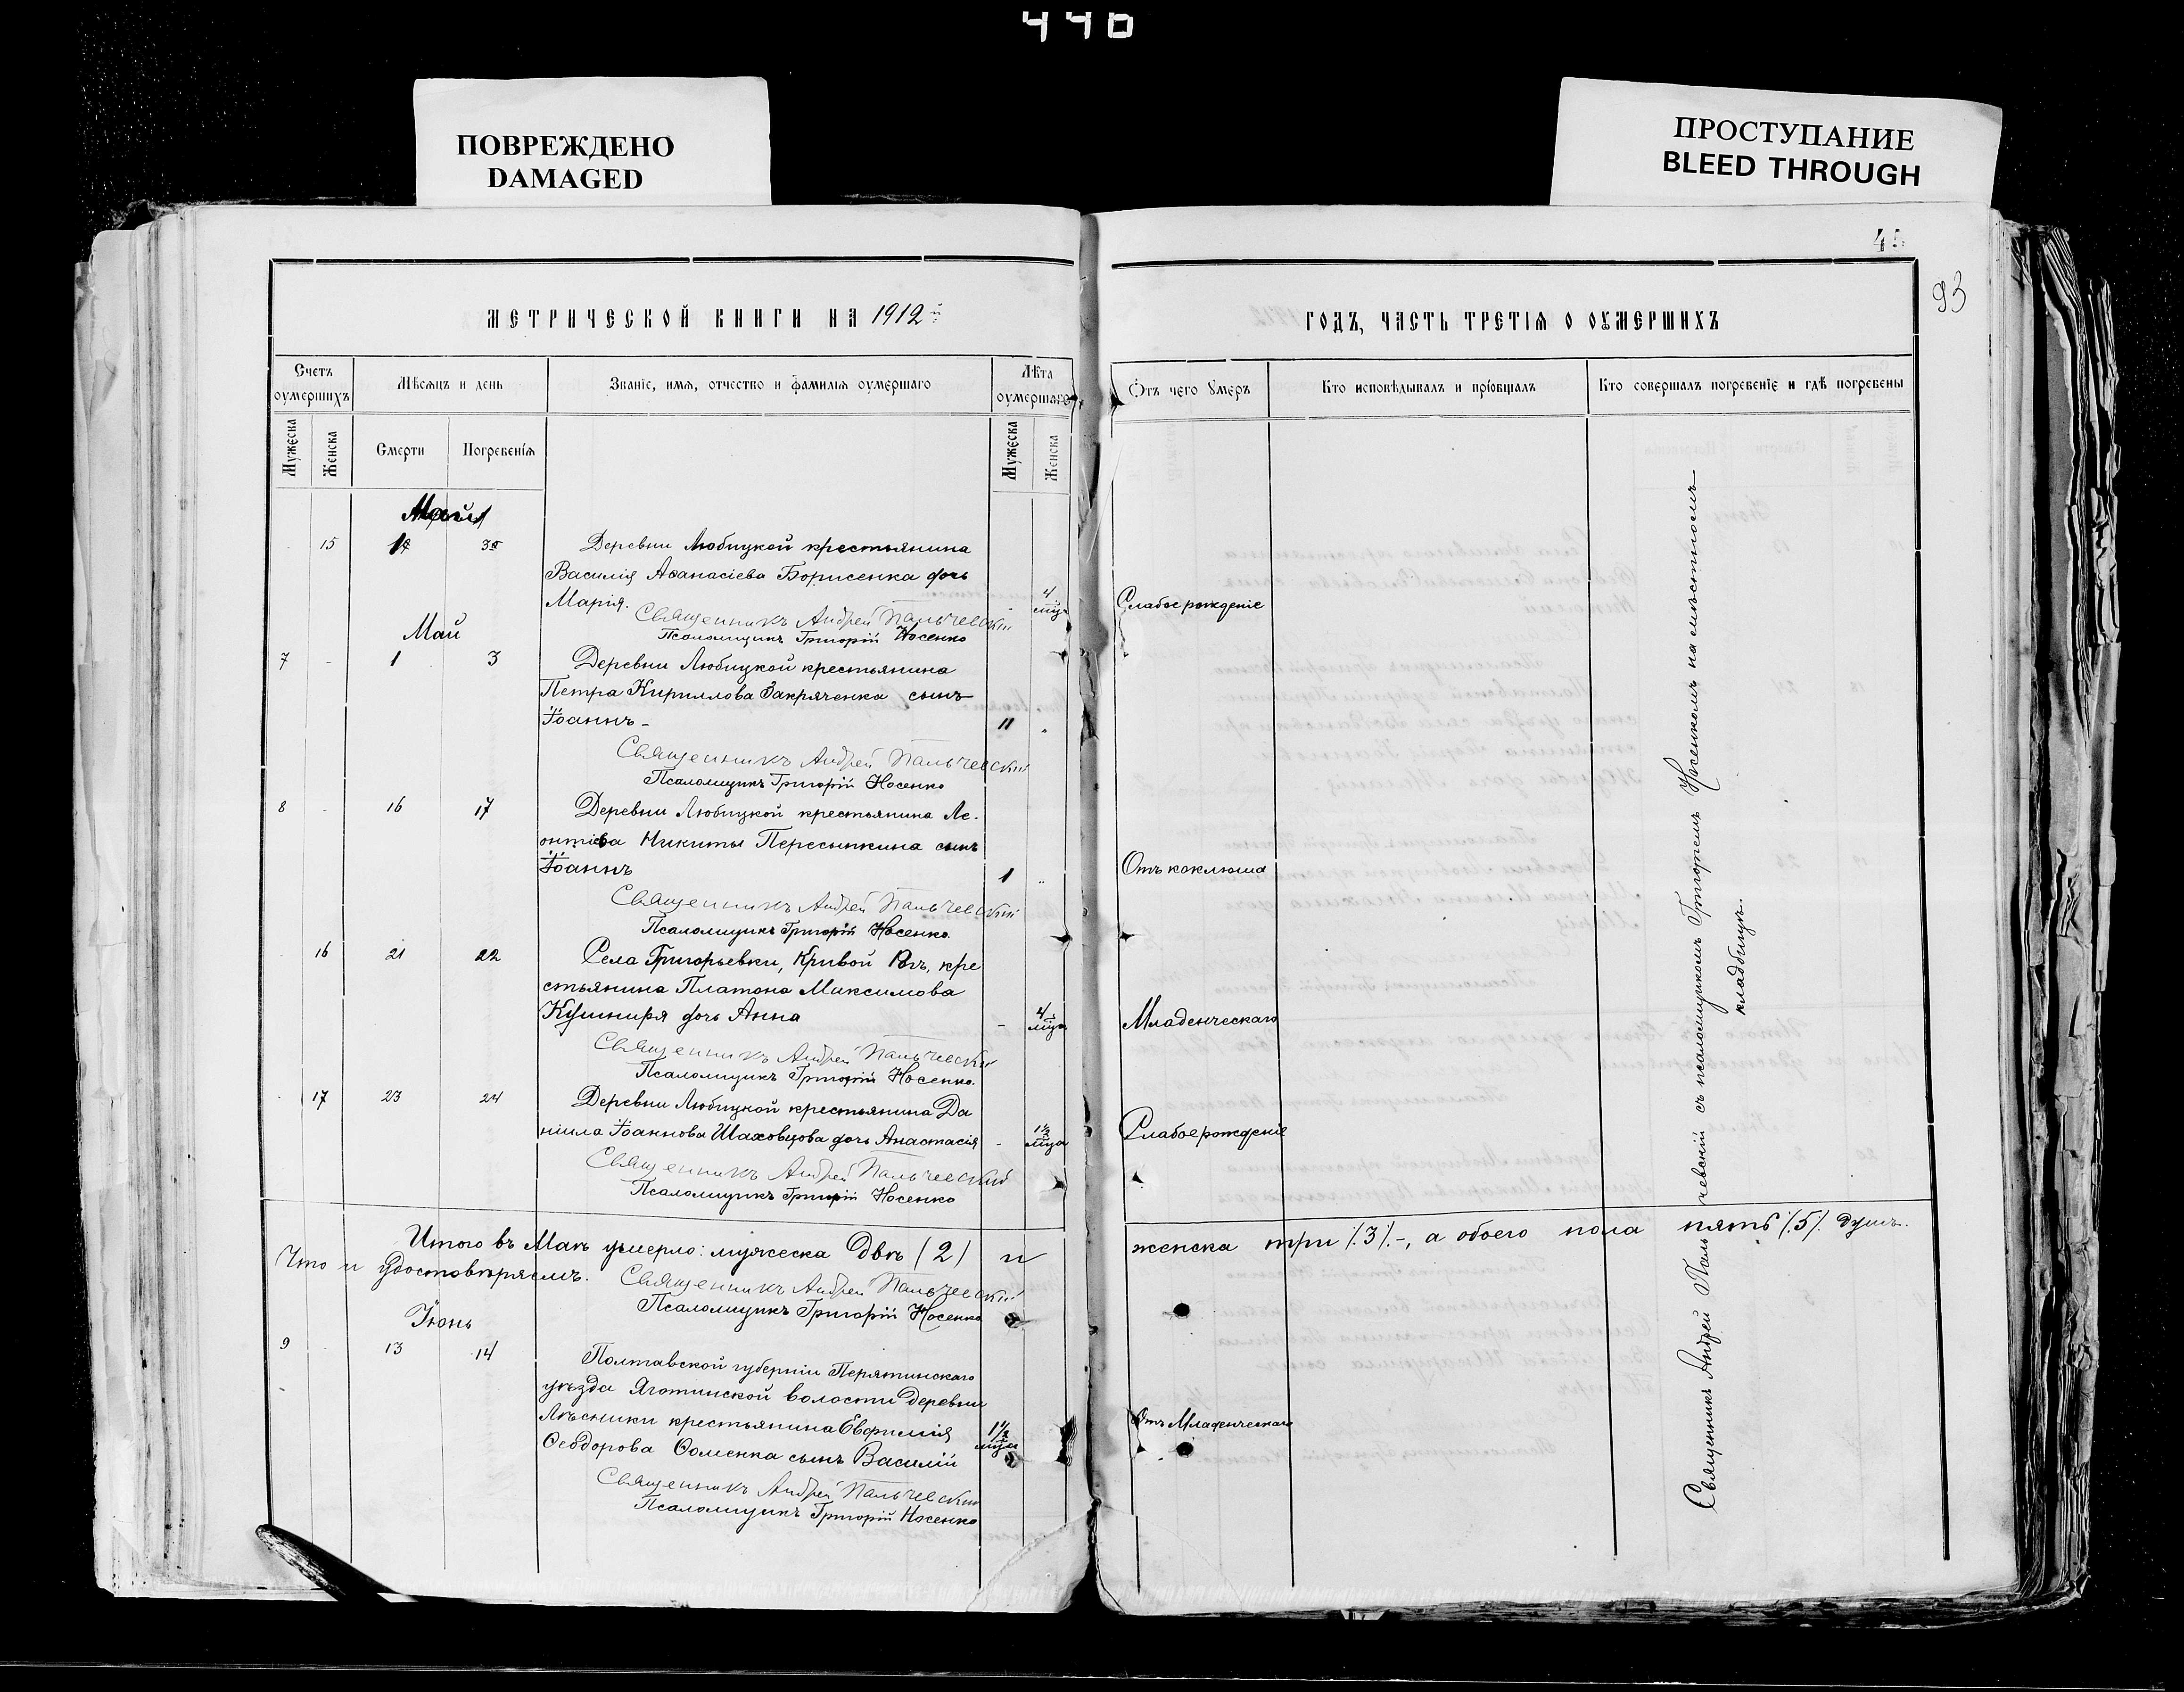 440
ПОВРЕЖДЕНО
DAMAGED
ПРОСТУПАНИЕ
BLEED THROUGH
45
93
МЕТРИЧЕСКОЙ КНИГИ НА 1912й
ГОДЪ, ЧАСТЬ ТРЕТІЯ О ОУМЕРШИХЪ
Счетъ оумершихъ
Мѣсяцъ и день
Званіе, имя, отчество и фамилія оумершаго
Лѣта оумершаго
Отъ чего умеръ
Кто исповѣдывалъ и пріобщалъ
Кто совершалъ погребеніе и гдѣ погребены
Мужеска
Женска
Смерти
Погребенія
Мужеска
Женска
15
Деревни Любицкой крестьянина
Василія Аѳанасіева Борисенка дочь
Марія.
4 мца
Слабое рожденіе
Священникъ Андрей Пальчевскій
Псаломщикъ Григорій Носенко
Май
7 - 1 3
Деревни Любицкой крестьянина
Петра Кириллова Закряченка сынъ
Іоаннъ -
11
Священникъ Андрей Пальчевскій
Псаломщикъ Григорій Носенко
8 - 16 17
Деревни Любицкой крестьянина Ле-
онтіева Никиты Пересыпкина сынъ
Іоаннъ
1
Отъ коклюша
Священникъ Андрей Пальчевскій
Псаломщикъ Григорій Носенко.
16 21 22
Села Григорьевки, Кривой Рогъ, кре
стьянина Платона Максимова
Кушниря дочь Анна
- 4 мца
Младенческаго
Священникъ Андрей Пальчевскій
Псаломщикъ Григорій Носенко.
17 23 24
Деревни Любицкой крестьянина Да
ніила Іоаннова Шаховцова дочь Анастасія
- 1½ мца
Слабое рожденіе
Священникъ Андрей Пальчевскій
Псаломщикъ Григорій Носенко
Итого въ Маѣ умерло: мужеска двѣ (2) и женска три /.3/.-, а обоего пола пять /.5/. душъ.
Что и удостовѣряемъ.
Священникъ Андрей Пальчевскій
Псаломщикъ Григорій Носенко
Іюнь
9 13 14
Полтавской губерніи Пирятинскаго
уѣзда Яготинской волости Деревни
Лѣсники крестьянина Евфимія
Ѳеодорова Ѳоменка сынъ Василій
1½ мца
Отъ Младенческаго
Священникъ Андрей Пальчевскій
Псаломщикъ Григорій Носенко
Священникъ Андрей Пальчевскій съ псаломщикомъ Григоріемъ Носенкомъ на мѣстномъ
кладбищѣ.